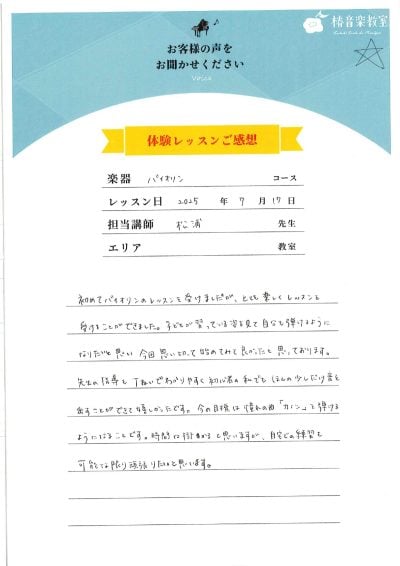 椿音楽教室
お客様の声を
お聞かせください
Voice
体験レッスンご感想
楽器 バイオリン コース
レッスン日 2025 年 7 月 17 日
担当講師 松浦 先生
エリア 教室
初めてバイオリンのレッスンを受けましたが、とても楽しくレッスンを
受けることができました。子どもが習っている姿を見て自分も弾けるように
なりたいと思い 今回思い切って始めてみて良かったと思っております。
先生の指導も丁寧でわかりやすく初心者の私でもほんの少しだけ音を
出すことができて嬉しかったです。今の目標は憧れの曲「カノン」を弾ける
ようになることです。時間は掛かると思いますが、自宅での練習も
可能な限り頑張りたいと思います。